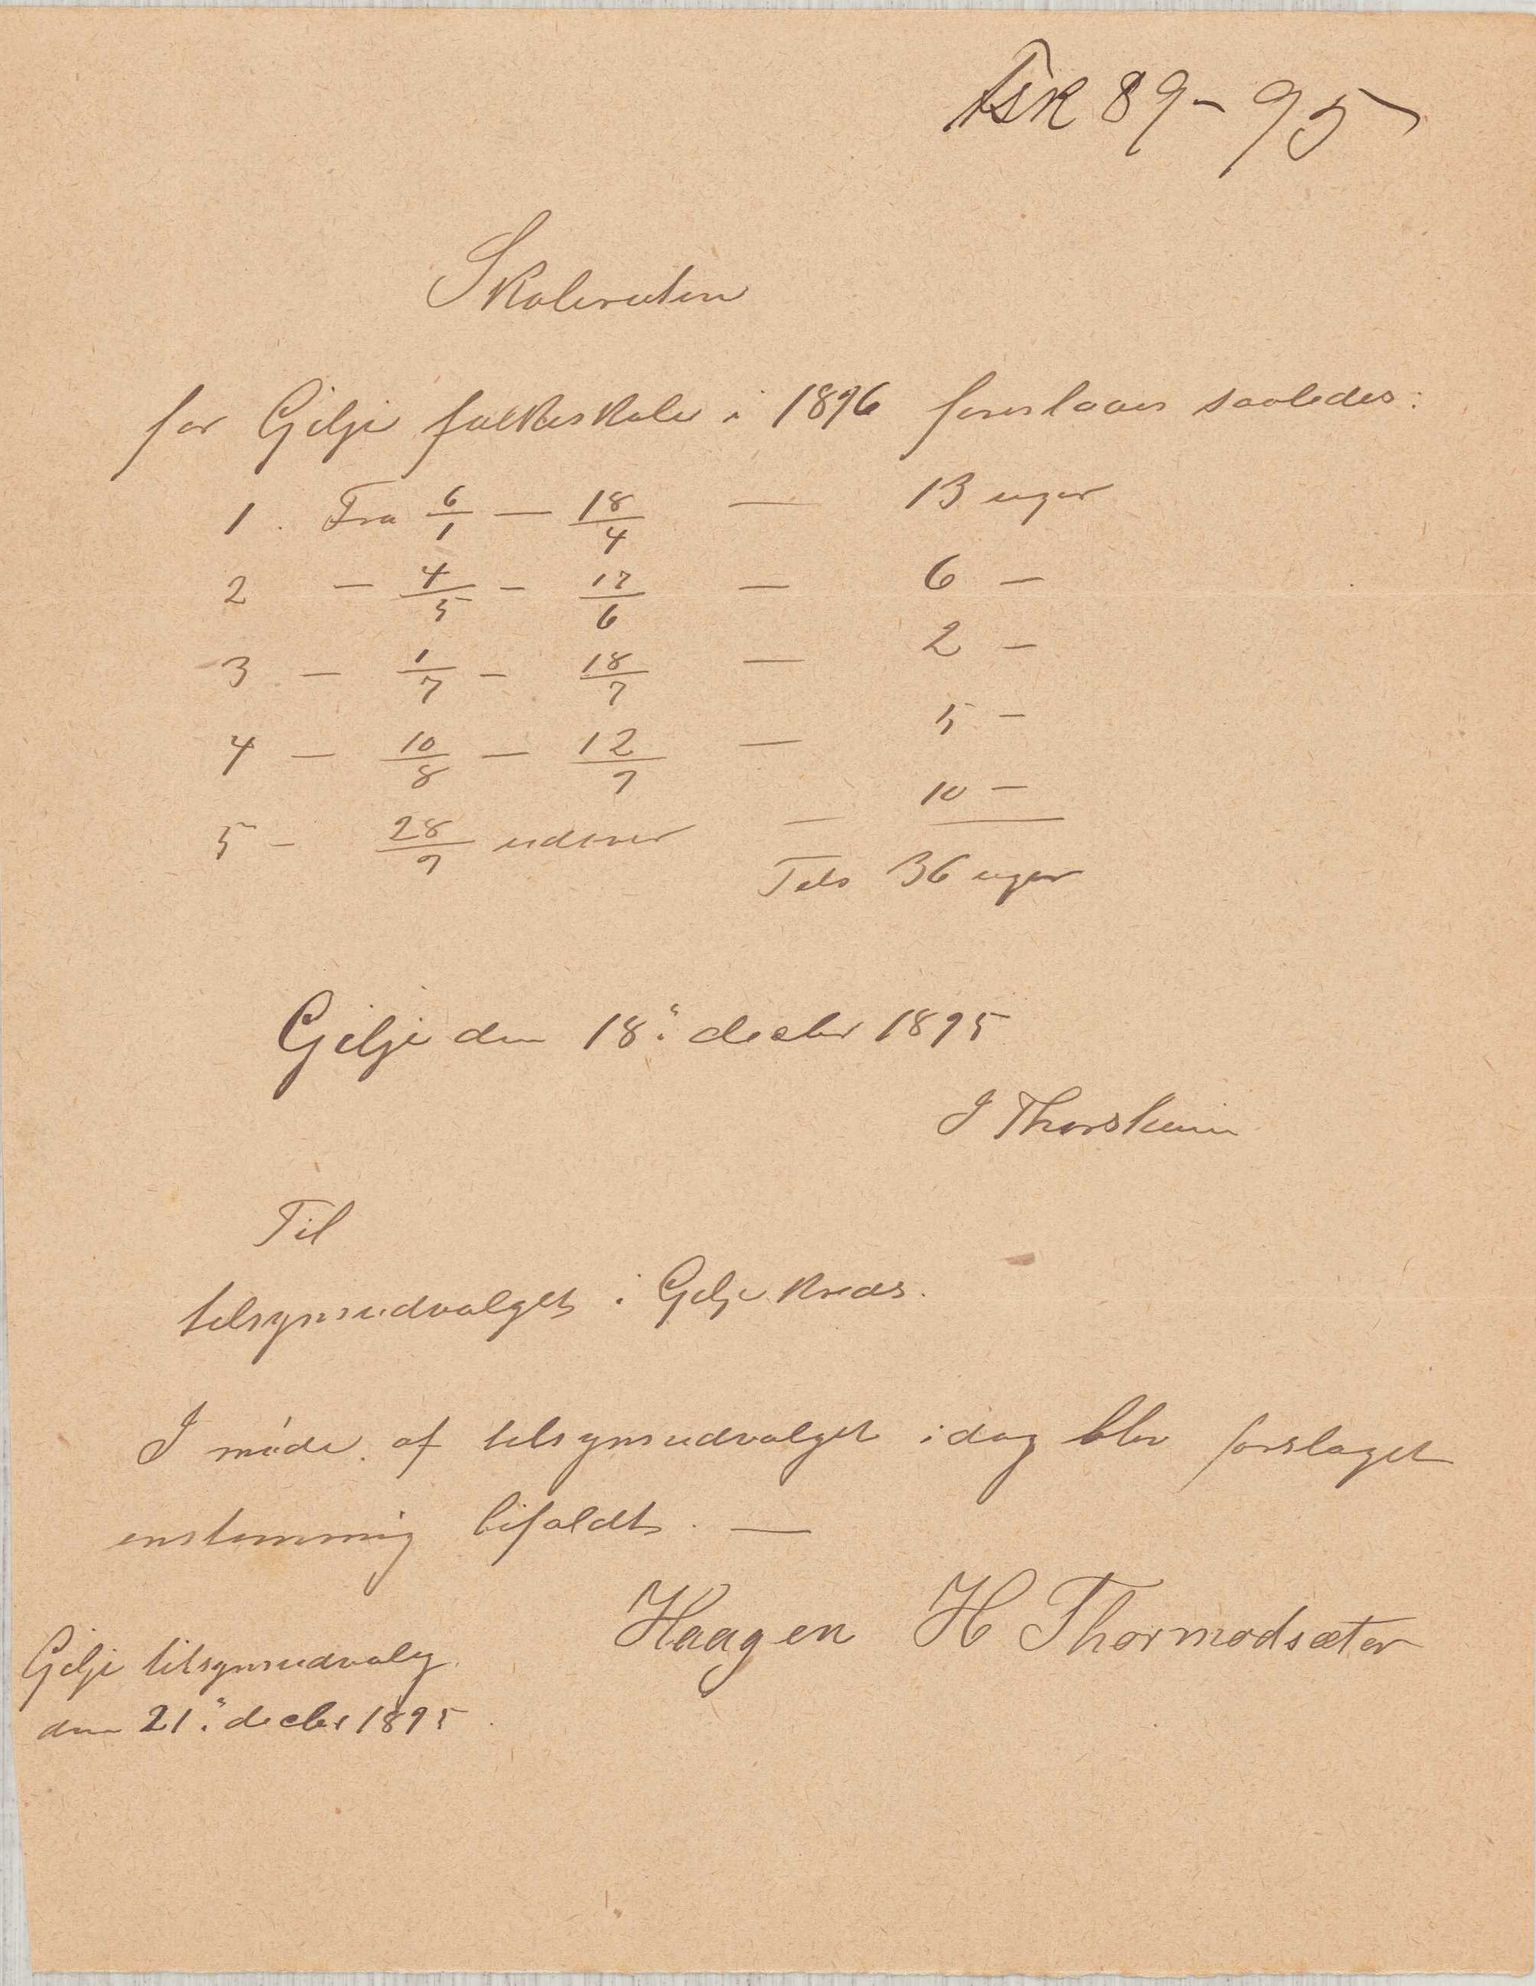 Fsk 89-95
Skoleruten
for Gilje folkeskole i 1896 foreslaaes saaledes:
1. Fra 6/1 — 18/4 — 13 uger
2 — 4/5 — 17/6 — 6 —
3 — 1/7 — 18/7 — 2 —
4 — 10/8 — 12/9 — 5 —
5 — 28/9 udover — 10 —
Tils 36 uger
Gilje den 18: decbr 1895
J Thorsheim
Til
tilsynsudvalget i Gilje kreds.
I møde af tilsynsudvalget idag blev forslaget
enstemmig bifaldt. —
Haagen H Thormodsæter
Gilje tilsynsudvalg
den 21: decbr 1895.